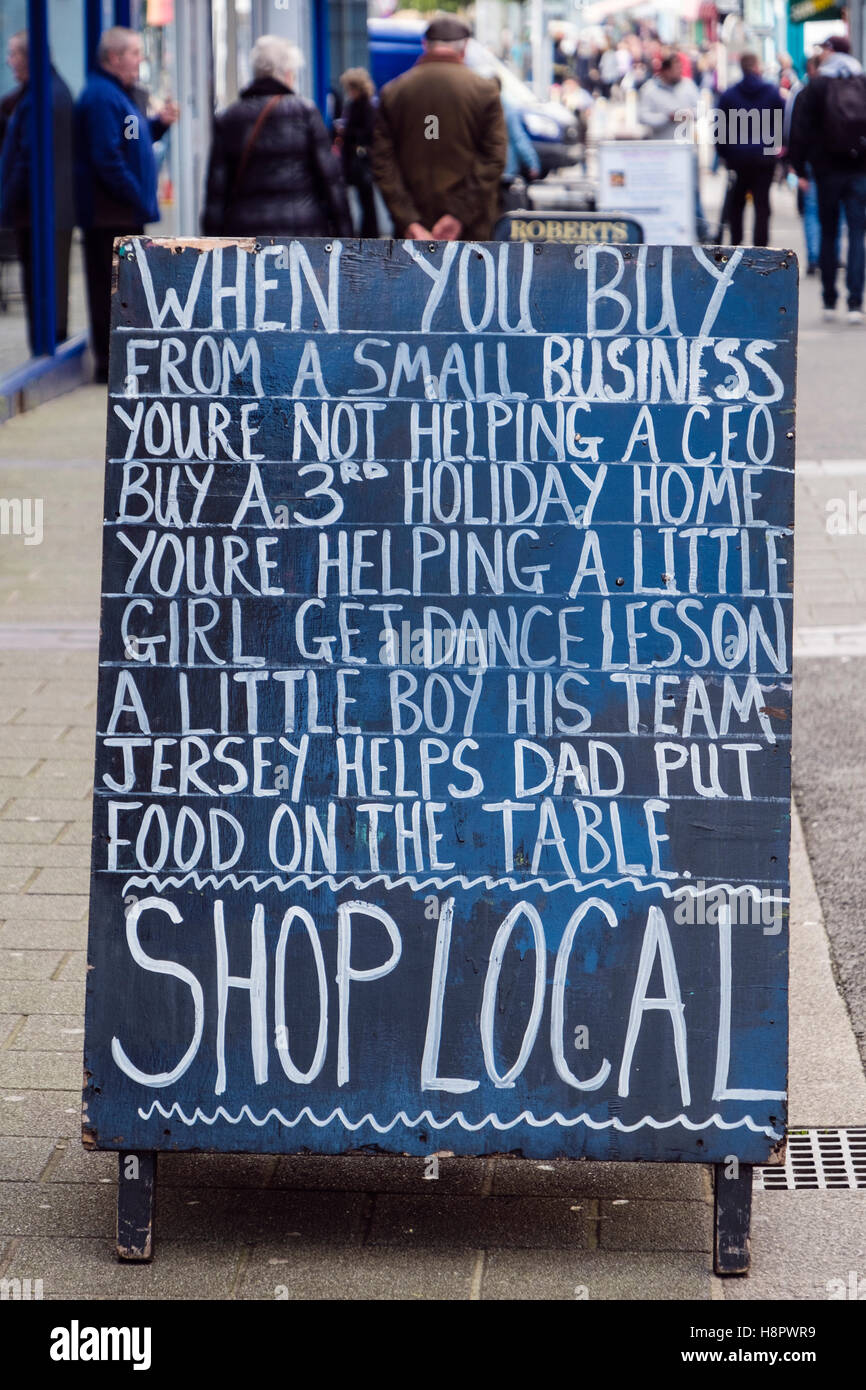 ROBERTS
WHEN YOU BUY
FROM A SMALL BUSINESS
YOURE NOT HELPING A CEO
BUY A 3RD HOLIDAY HOME
YOURE HELPING A LITTLE
GIRL GET DANCE LESSON
A LITTLE BOY HIS TEAM
JERSEY HELPS DAD PUT
FOOD ON THE TABLE.
SHOP LOCAL
alamy stock photo
H8PWR9
www.alamy.com